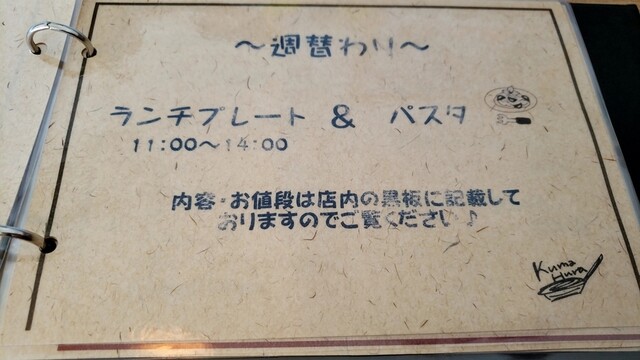 ～週替わり～
ランチプレート & パスタ
11:00～14:00
内容・お値段は店内の黒板に記載して
おりますのでご覧ください♪
Kuma
Hura